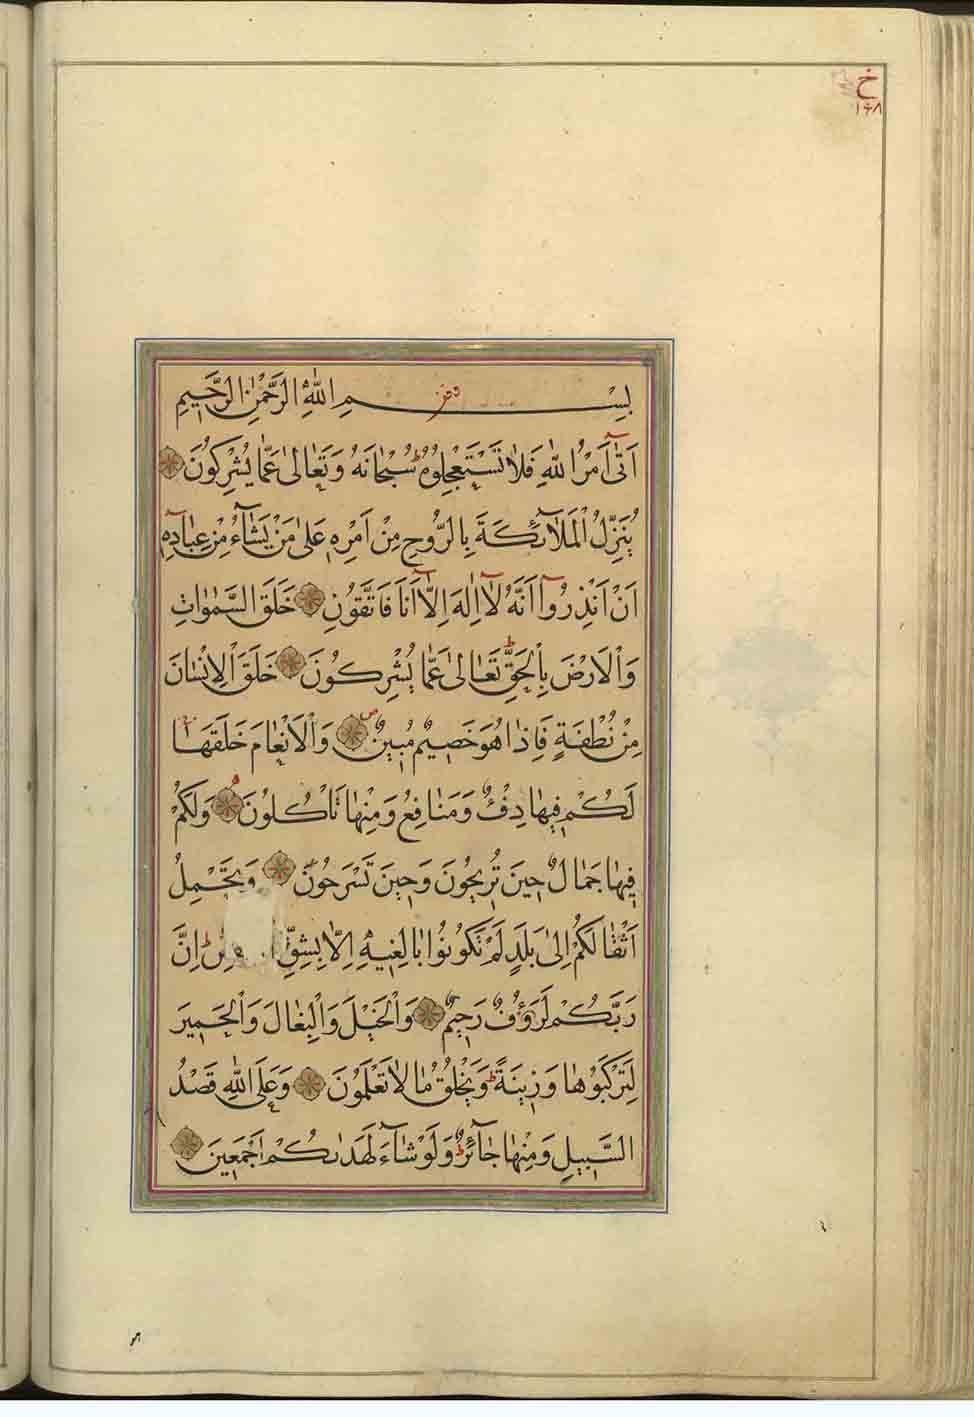 خ
۱۶۸
بِسْمِ اللّٰهِ الرَّحْمٰنِ الرَّحِيمِ
اَتٰٓى اَمْرُ اللّٰهِ فَلَا تَسْتَعْجِلُوهُ سُبْحَانَهُ وَتَعَالٰى عَمَّا يُشْرِكُونَ
يُنَزِّلُ الْمَلَآئِكَةَ بِالرُّوحِ مِنْ اَمْرِهِ عَلٰى مَنْ يَشَآءُ مِنْ عِبَادِهِٓ
اَنْ اَنْذِرُوٓا اَنَّهُ لَآ اِلٰهَ اِلَّآ اَنَا فَاتَّقُونِ خَلَقَ السَّمٰوَاتِ
وَالْاَرْضَ بِالْحَقِّ تَعَالٰى عَمَّا يُشْرِكُونَ خَلَقَ الْاِنْسَانَ
مِنْ نُطْفَةٍ فَاِذَا هُوَ خَصِيمٌ مُبِينٌ وَالْاَنْعَامَ خَلَقَهَا
لَكُمْ فِيهَا دِفْءٌ وَمَنَافِعُ وَمِنْهَا تَاْكُلُونَ وَلَكُمْ
فِيهَا جَمَالٌ حِينَ تُرِيحُونَ وَحِينَ تَسْرَحُونَ وَتَحْمِلُ
اَثْقَالَكُمْ اِلٰى بَلَدٍ لَمْ تَكُونُوا بَالِغِيهِ اِلَّا بِشِقِّ اِنَّ
رَبَّكُمْ لَرَؤُفٌ رَحِيمٌ وَالْخَيْلَ وَالْبِغَالَ وَالْحَمِيرَ
لِتَرْكَبُوهَا وَزِينَةً وَيَخْلُقُ مَا لَا تَعْلَمُونَ وَعَلَى اللّٰهِ قَصْدُ
السَّبِيلِ وَمِنْهَا جَآئِرٌ وَلَوْ شَآءَ لَهَدٰىكُمْ اَجْمَعِينَ